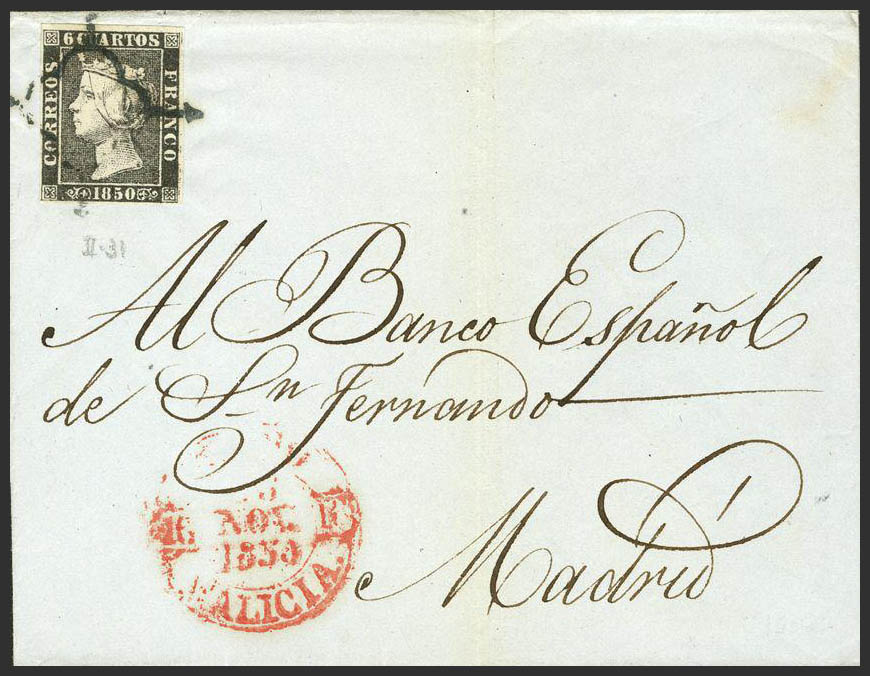 6 CUARTOS
CORREOS
FRANCO
1850
II-31
Al Banco Español
de Sn Fernando
Madrid
NOV.
1850
GALICIA.